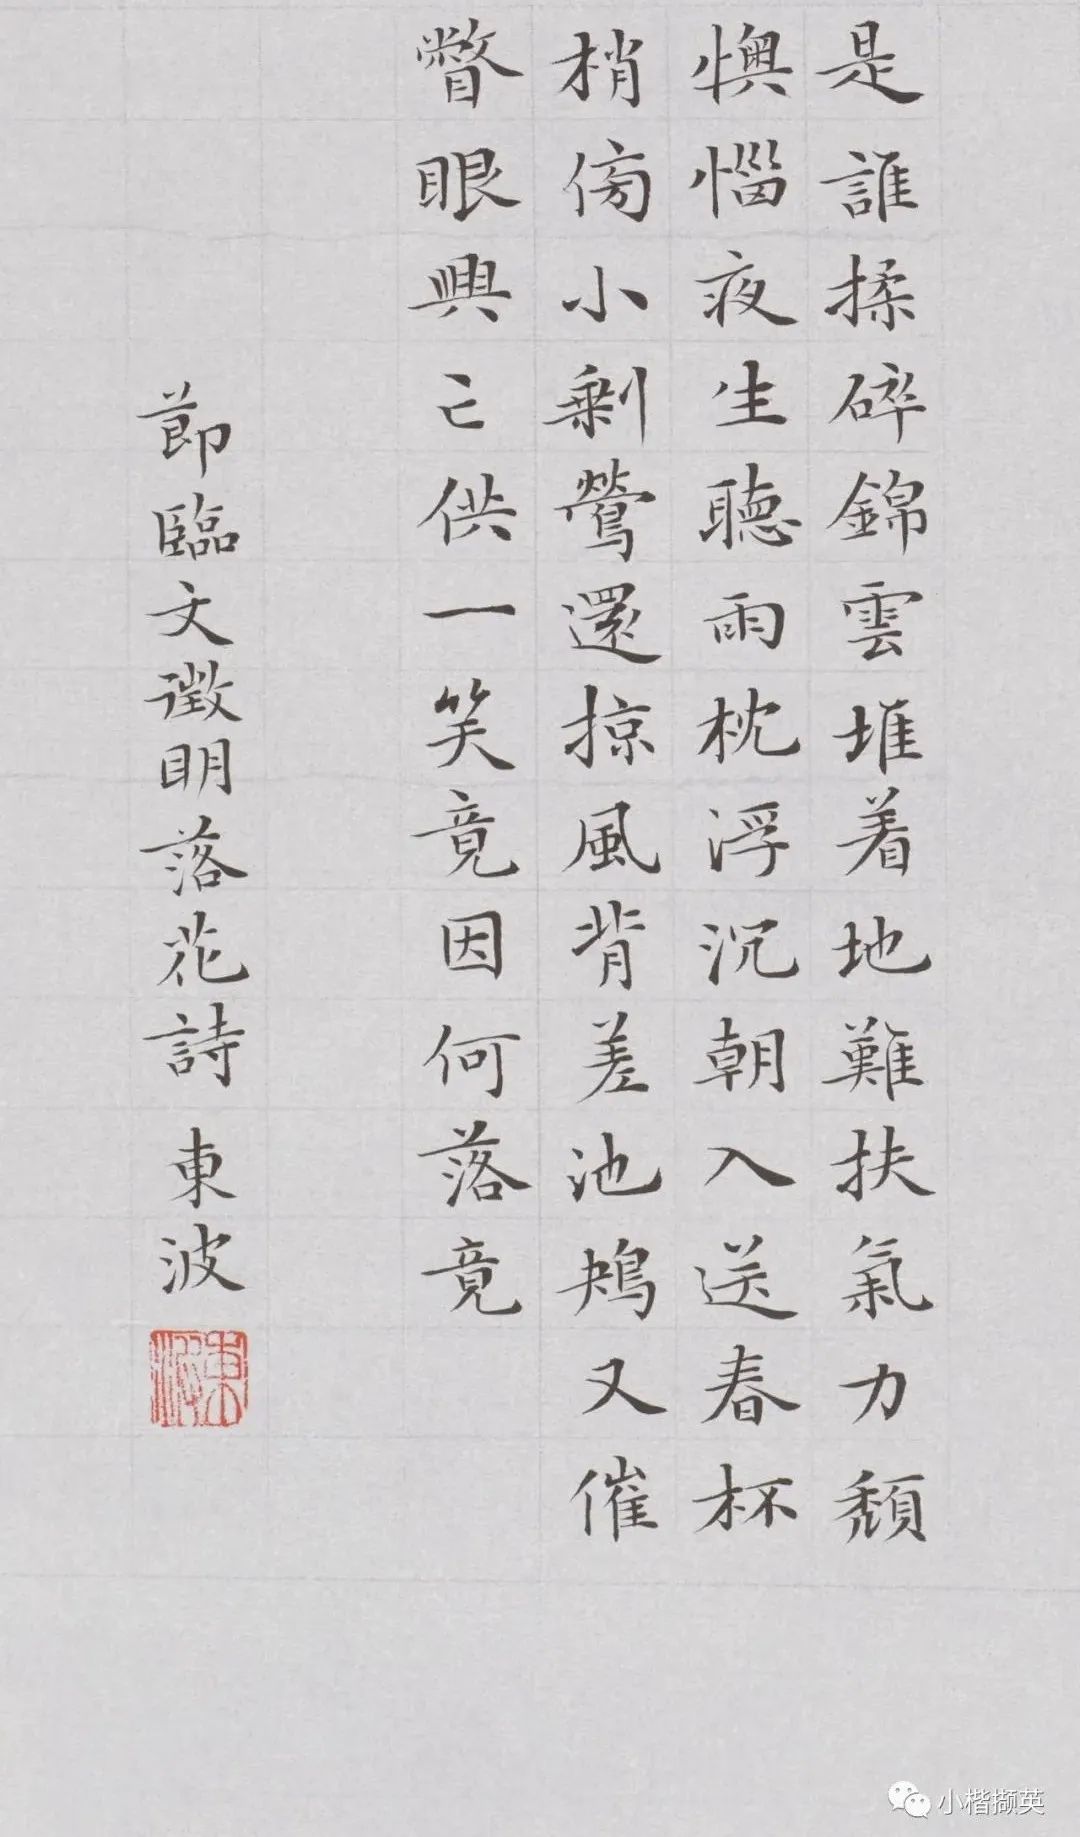 是誰揉碎錦雲堆着地難扶氣力頹
懊惱夜生聽雨枕浮沉朝入送春杯
梢傍小剩鶯還掠風背差池鴂又催
瞥眼興亡供一笑竟因何落竟
節臨文徵明落花詩 東波
東波
小楷撷英